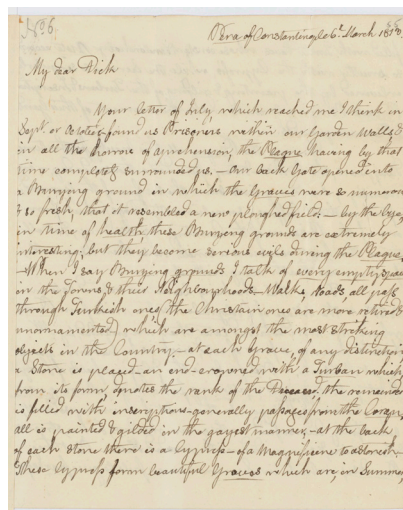 No. 6.
Pera of Constantinople 6th March 18
My dear Dick
Your letter of July, which reached me I think in
Sept. or October found us Prisoners within our Garden Walls
in all the horrors of apprehension, the Plague having by that
time completely surrounded us. – Our back Gate opened into
a Burying ground in which the Graves were so numerous
& so fresh, that it resembled a new ploughed field: – by the bye,
in time of health, these Burying grounds are extremely
interesting, but they become serious evils during the Plague
– When I say Burying grounds I talk of every empty space
in the Towns & their Neighbourhoods – Walks, Roads, all pass
through Turkish ones (the Christian ones are more retired
unornamented) which are amongst the most striking
objects in the Country, – at each Grave, of any distinction
a Stone is placed – an end – crowned with a Turban which
from its form denotes the rank of the Deceased, the remainder
is filled with inscriptions – generally passages from the Coran,
all is painted & gilded in the gayest manner, – at the back
of each Stone there is a Cypress – of a Magnificence to astonish. –
These Cypress form beautiful Groves which are, in Summer,